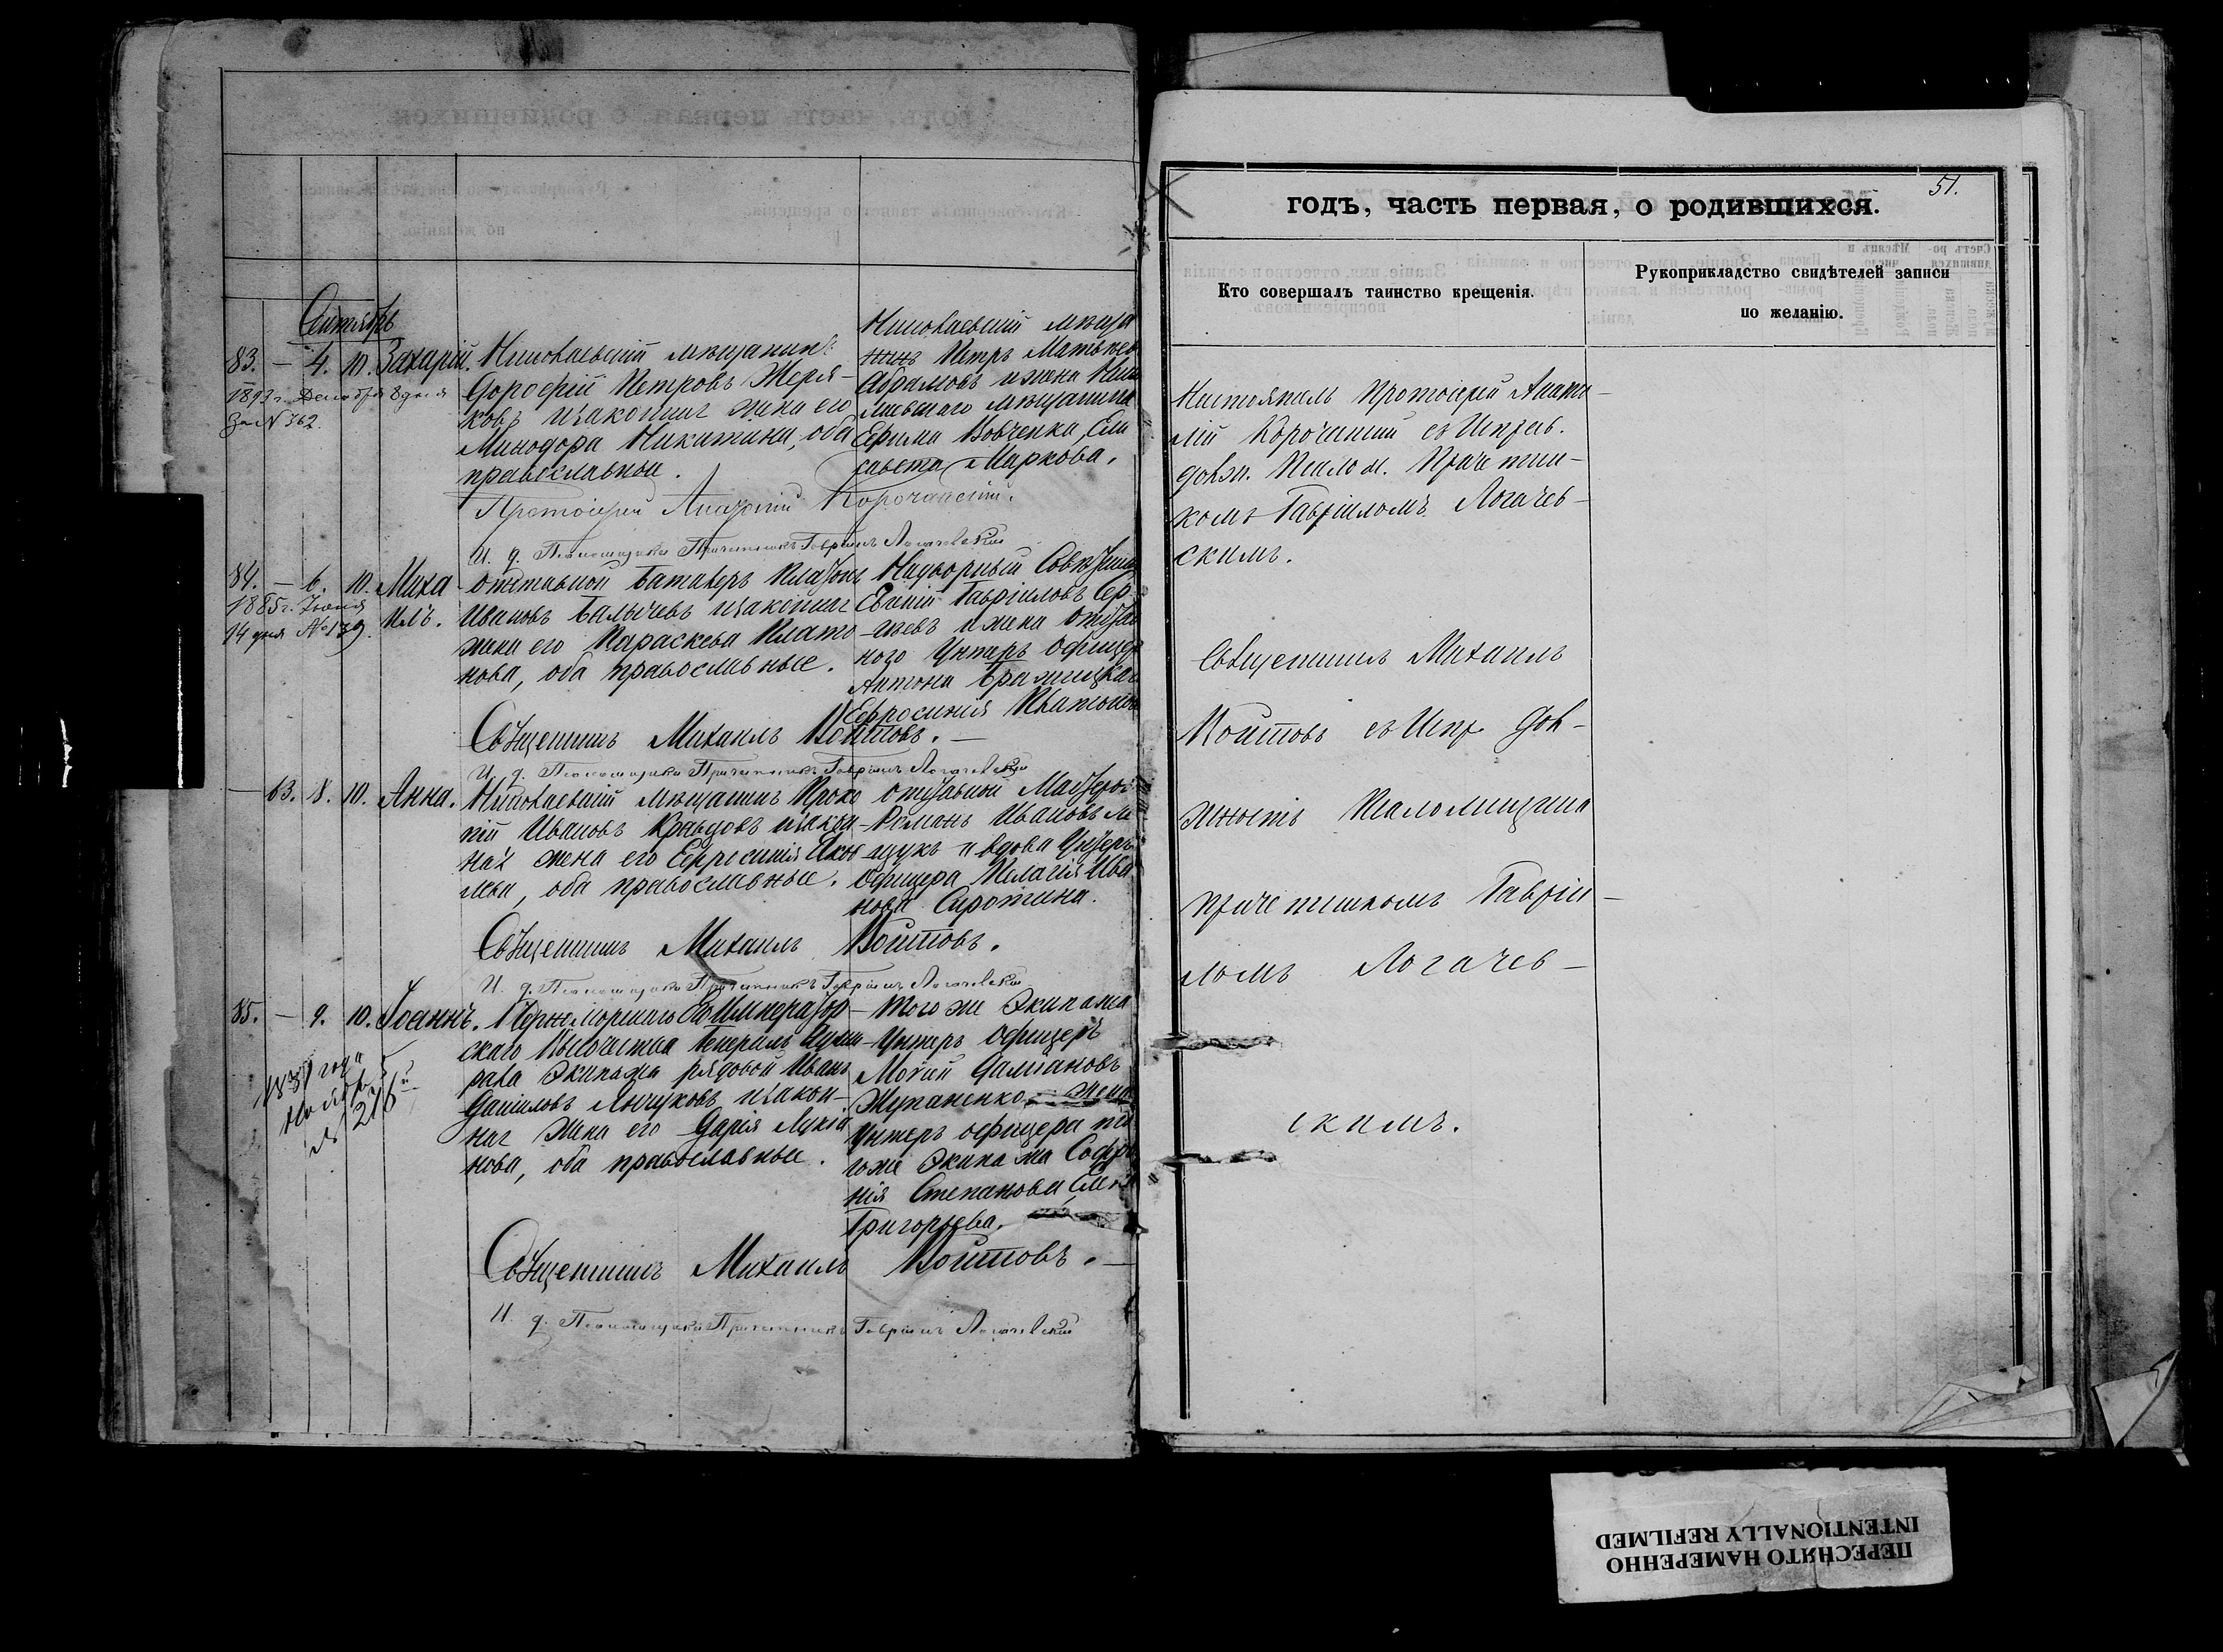 Сентябрь
83. — 4. 10. Захарій. Николаевскій мѣщанинъ
Дорофей Петровъ Жеря-
ковъ и законная жена его
Минодора Никитина, оба
православные.
Николаевскій мѣща
нинъ Петръ Матвѣев
Абрамовъ и жена Нико
лаевскаго мѣщанина
Ефима Вовченка, Ели
савета Маркова.
1893 г. Декабря 8 дня
За № 362.
Протоіерей Корочанскій.
И. д. Псаломщика Причетникъ Гавріилъ Логачевскій
84. — 6. 10. Миха-
илъ.
1885 г. Іюня
14 дня № 139.
Отставной Платонъ
Ивановъ Балычевъ и законная
жена его Параскева Плато-
нова, оба православные.
Надворный Совѣтникъ
Евгеній Гавріиловъ Сер-
гѣевъ и жена отстав
ного Унтеръ офицера
Антона
Евфросинія
Священникъ Михаилъ Войтовъ. —
И. д. Псаломщика Причетникъ Гавріилъ Логачевскій
— 63. 8. 10. Анна. Николаевскій мѣщанинъ Проко
пій Ивановъ Кравцовъ и закон-
ная жена его Евфросинія Яков
лева, оба православные.
Отставной
Романъ Ивановъ
и вдова Унтеръ
офицера Пелагія Ива
нова Сиротина.
Священникъ Михаилъ Войтовъ.
И. д. Псаломщика Причетникъ Гавріилъ Логачевскій
85. — 9. 10. Іоаннъ. Черноморскаго Его Император-
скаго Высочества Генералъ Адми-
рала Экипажа рядовой Иванъ
Даніиловъ и закон-
ная жена его Дарія Лукіа
нова, оба православные.
Того же Экипажа
Унтеръ офицеръ
Моисій Даміановъ
Жупаненко
Унтеръ офицера то
гоже Экипажа Софро
нія Степанова
Григорьева.
1889 года
№ 276
Священникъ Михаилъ Войтовъ. —
И. д. Псаломщика Причетникъ Гавріилъ Логачевскій
51.
годъ, часть первая, о родившихся.
Кто совершалъ таинство крещенія.
Рукоприкладство свидѣтелей записи
по желанію.
Настоятель Протоіерей Анато-
лій Корочанскій съ Исправ.
долж. Псалом. Причетни-
комъ Гавріиломъ Логачев-
скимъ.
Священникъ Михаилъ
Войтовъ съ Испр. дол-
жность Псаломщика
причетникомъ Гавріи-
ломъ Логачев-
скимъ.
ПЕРЕСНЯТО НАМЕРЕННО
INTENTIONALLY REFILMED